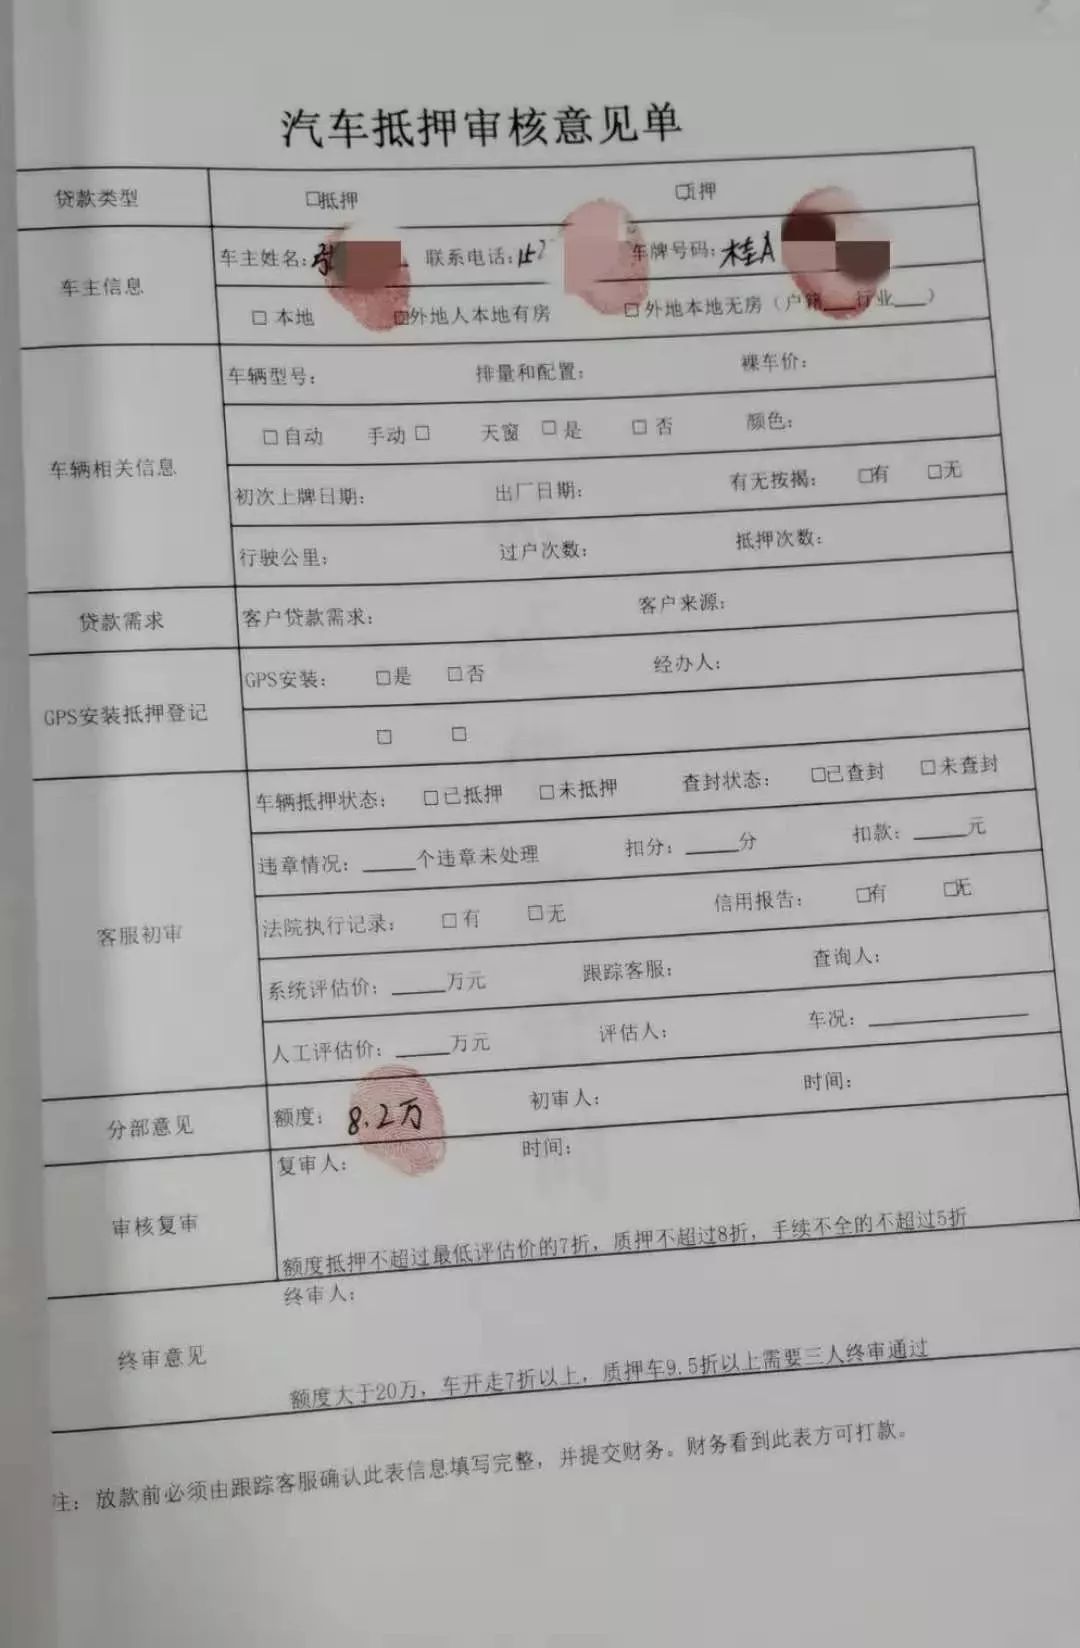 汽车抵押审核意见单
贷款类型 □抵押 □质押
车主信息 车主姓名:张 联系电话:15 车牌号码:桂A
□ 本地 □外地人本地有房 □外地本地无房（户籍___行业___）
车辆相关信息 车辆型号: 排量和配置: 裸车价:
□自动 手动□ 天窗 □是 □ 否 颜色:
初次上牌日期: 出厂日期: 有无按揭: □有 □无
行驶公里: 过户次数: 抵押次数:
贷款需求 客户贷款需求: 客户来源:
GPS安装抵押登记 GPS安装: □是 □否 经办人:
□ □
客服初审 车辆抵押状态: □已抵押 □未抵押 查封状态: □已查封 □未查封
违章情况: ____个违章未处理 扣分: ____分 扣款: ____元
法院执行记录: □有 □无 信用报告: □有 □无
系统评估价: ____万元 跟踪客服: 查询人:
人工评估价: ____万元 评估人: 车况: ____________
分部意见 额度: 8.2万 初审人: 时间:
审核复审 复审人: 时间:
额度抵押不超过最低评估价的7折，质押不超过8折，手续不全的不超过5折
终审意见 终审人:
额度大于20万，车开走7折以上，质押车9.5折以上需要三人终审通过
注: 放款前必须由跟踪客服确认此表信息填写完整，并提交财务。财务看到此表方可打款。